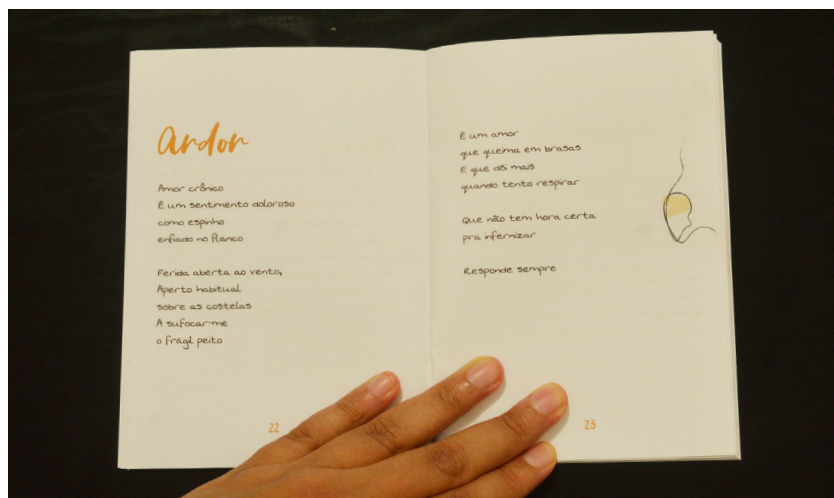 Ardor
Amor crônico
É um sentimento doloroso
como espinho
enfiado no flanco
Ferida aberta ao vento,
Aperto habitual
sobre as costelas
A sufocar-me
o frágil peito
22
É um amor
que queima em brasas
E que dói mais
quando tento respirar
Que não tem hora certa
pra infernizar
Responde sempre
23